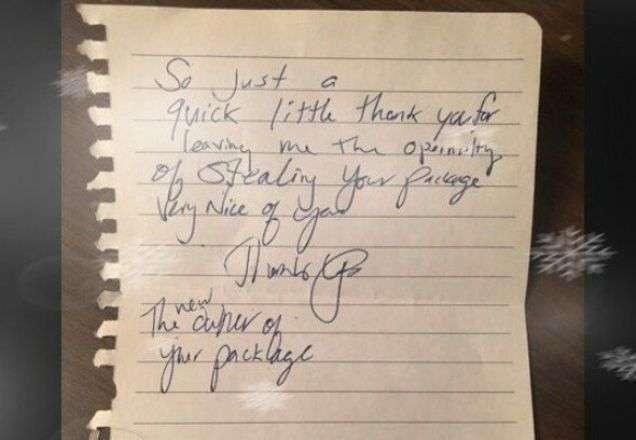 So Just a
quick little thank you for
leaving me the
of Stealing your package
Very Nice of you
Thanks
The new owner of
your package